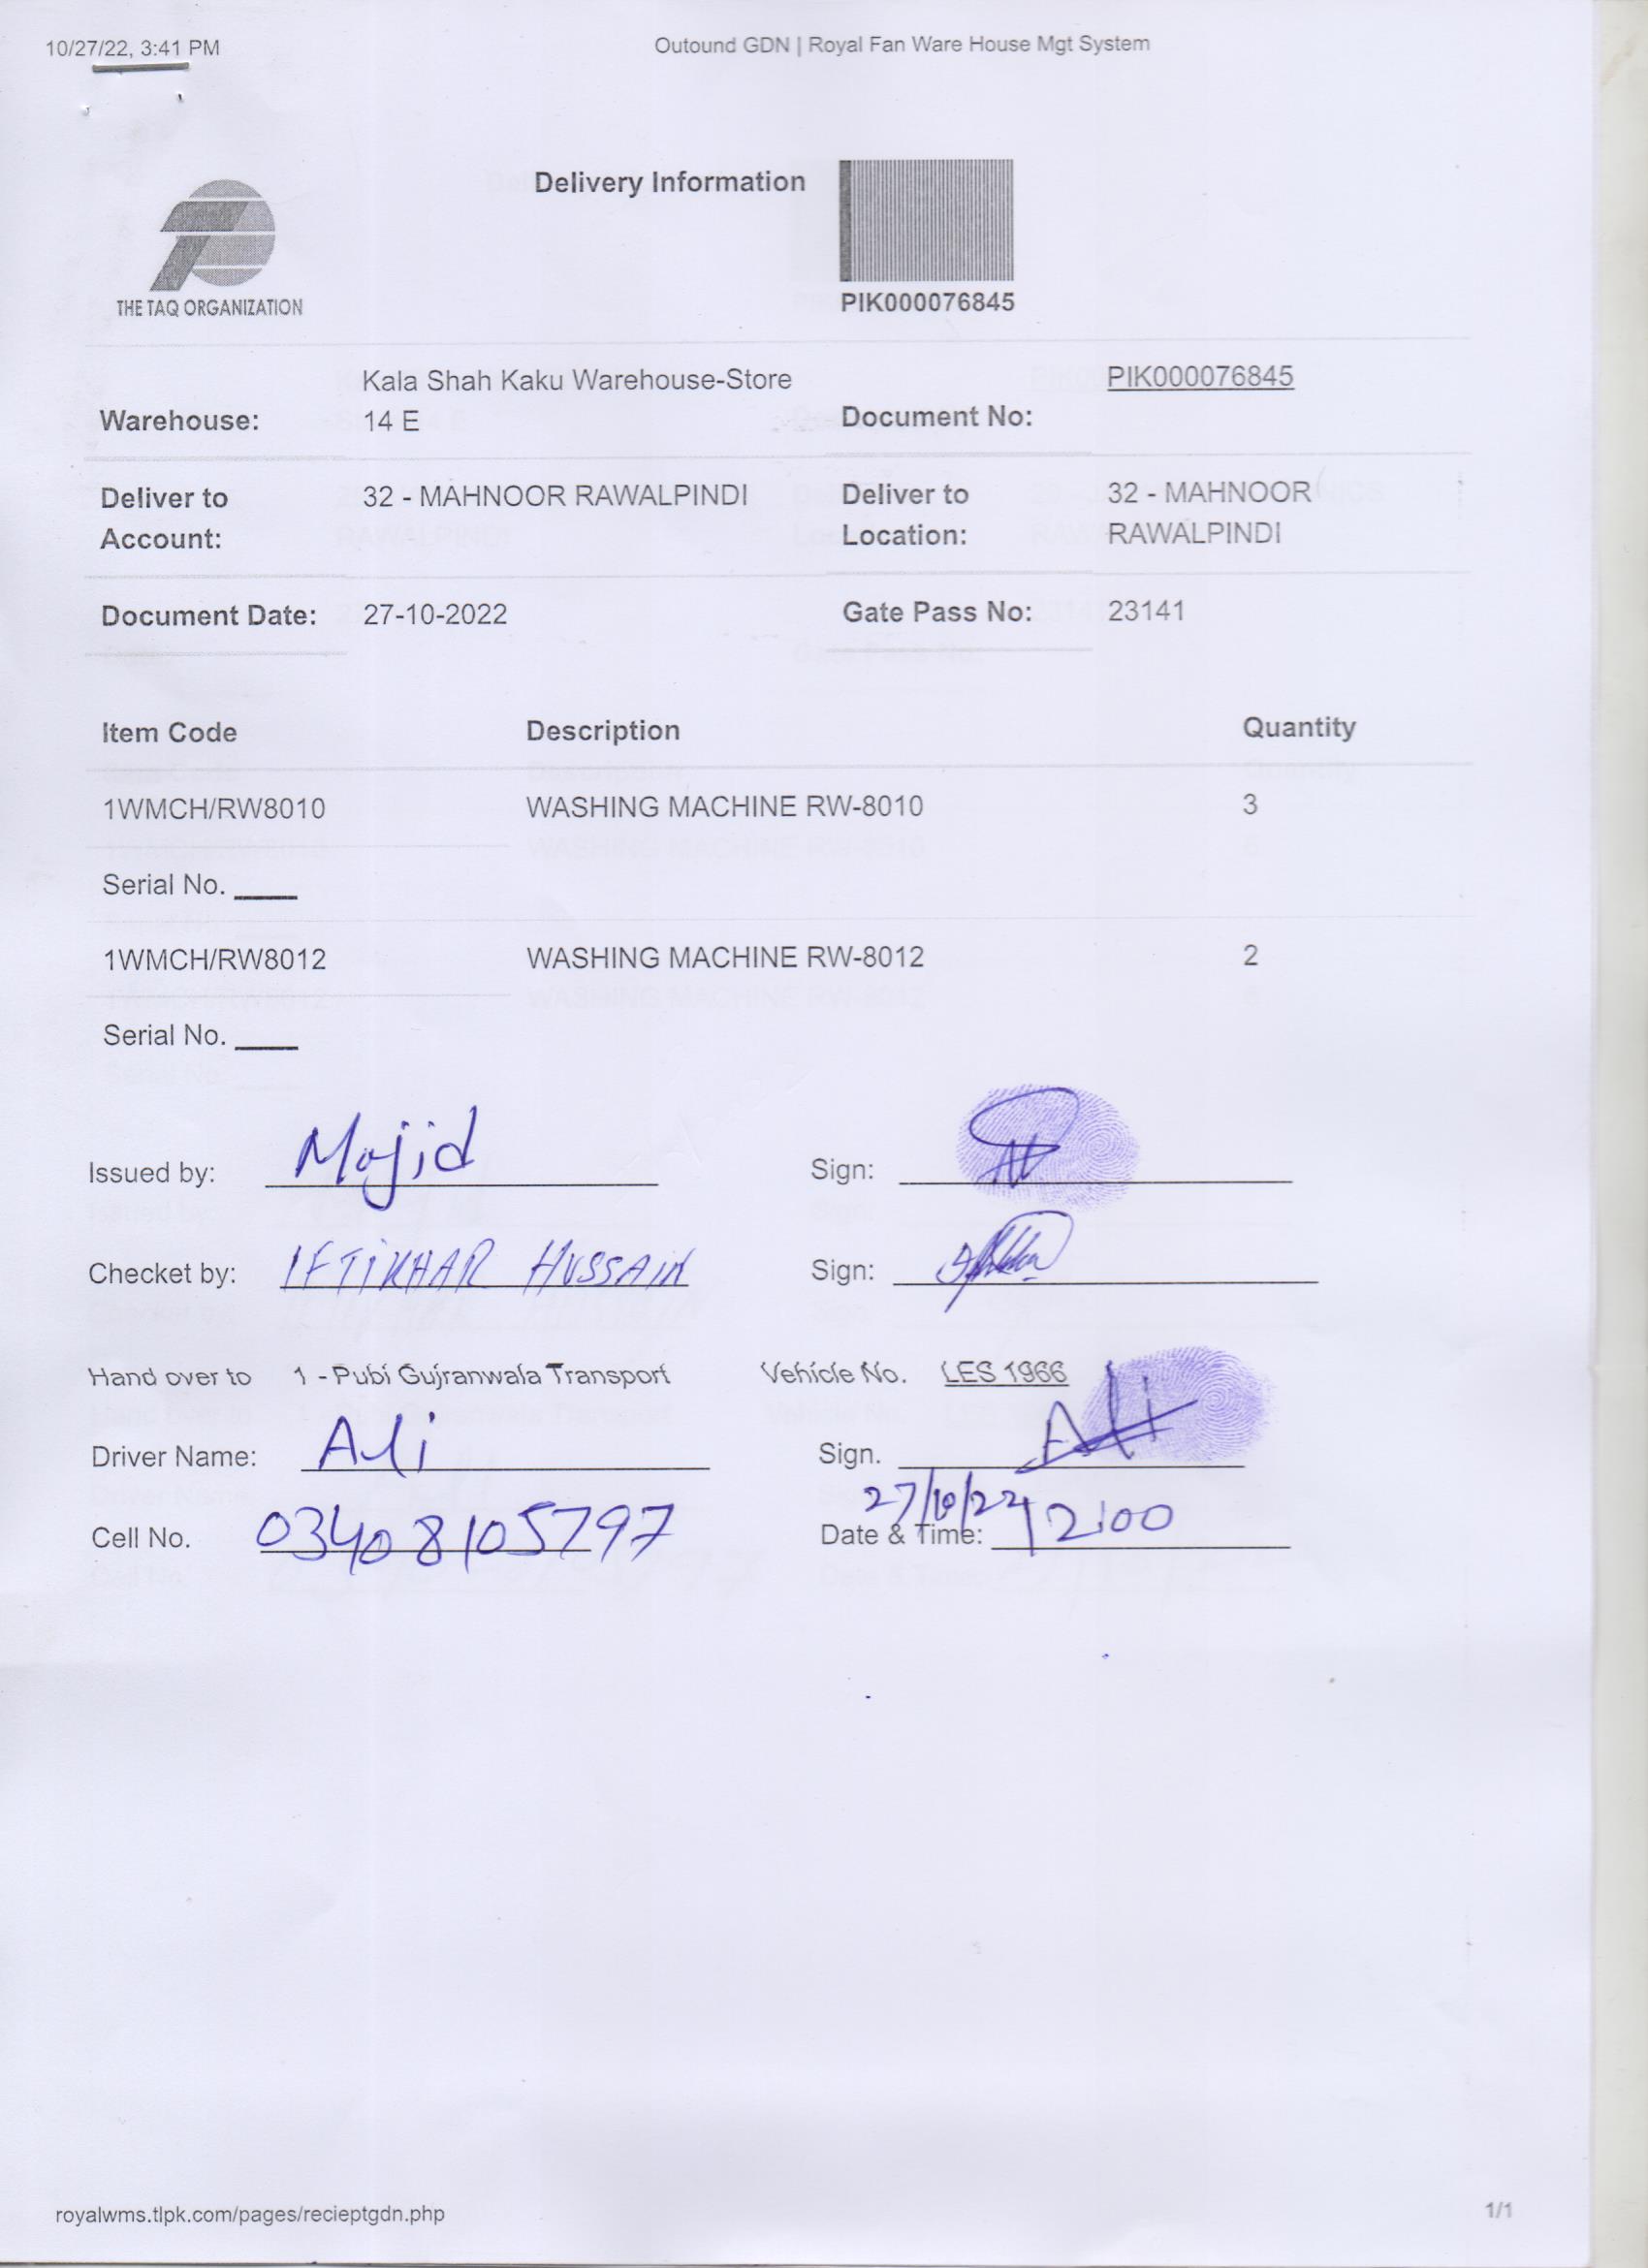 10/27/22, 3:41 PM
Outound GDN | Royal Fan Ware House Mgt System
Delivery Information
THE TAQ ORGANIZATION
PIK000076845
Kala Shah Kaku Warehouse-Store
PIK000076845
Warehouse: 14 E Document No:
Deliver to 32 - MAHNOOR RAWALPINDI Deliver to 32 - MAHNOOR
Account: Location: RAWALPINDI
Document Date: 27-10-2022 Gate Pass No: 23141
Item Code Description Quantity
1WMCH/RW8010 WASHING MACHINE RW-8010 3
Serial No. ____
1WMCH/RW8012 WASHING MACHINE RW-8012 2
Serial No. ____
Issued by: Majid Sign:
Checket by: IFTIKHAR HUSSAIN Sign:
Hand over to 1 - Pubi Gujranwala Transport Vehicle No. LES 1966
Driver Name: Ali Sign. Ali
27/10/22
Cell No. 03408105797 Date & Time: 12:00
royalwms.tlpk.com/pages/recieptgdn.php 1/1